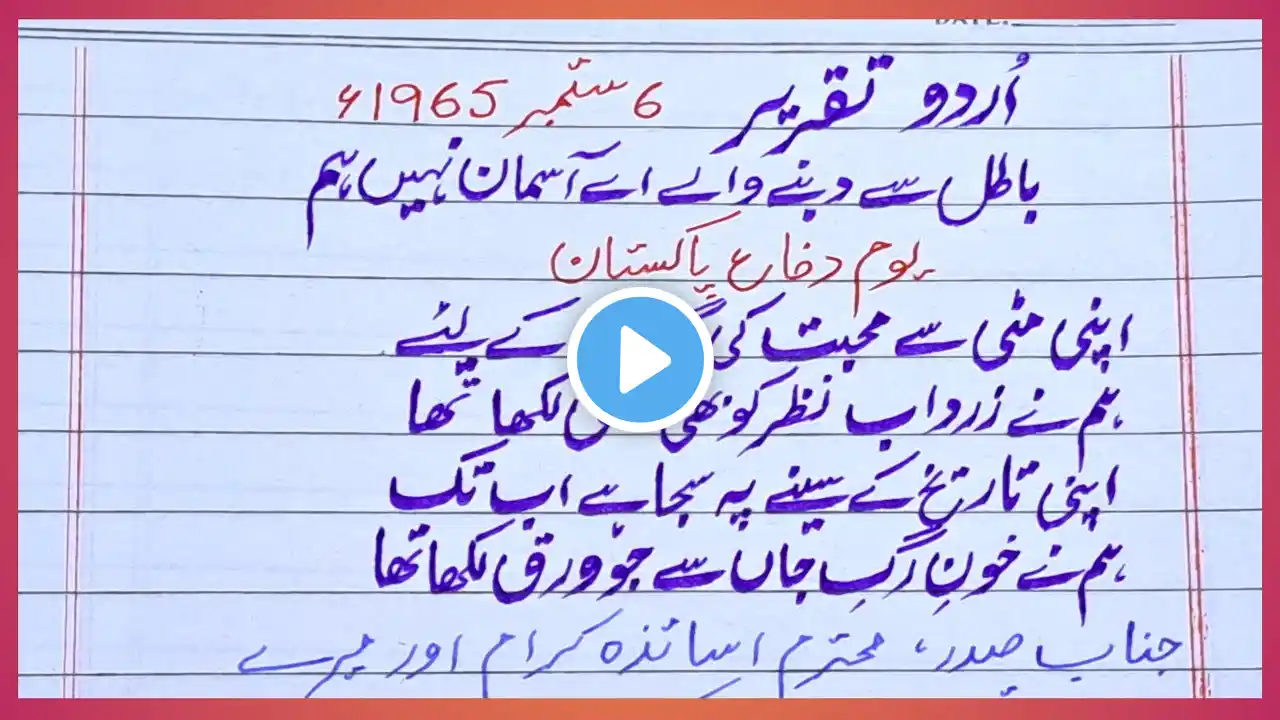 DATE:
اُردو تقریر 6 ستمبر 1965ء
باطل سے دبنے والے اے آسمان نہیں ہم
یوم دفاع پاکستان
اپنی مٹی سے محبت کی کے لیئے
ہم نے زرداب نظر کو بھی لکھا تھا
اپنی تاریخ کے سینے پہ سجا ہے اب تک
ہم نے خونِ رگِ جاں سے جو ورق لکھا تھا
جناب صدر، محترم اساتذہ کرام اور میرے